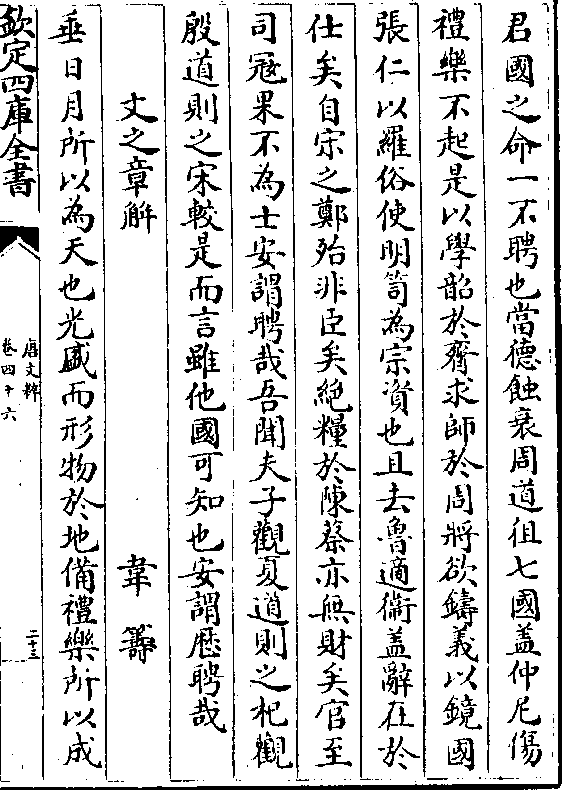 君國之命一不聘也當德蝕衰周道徂七國蓋仲尼傷
禮樂不起是以學韶於齊求師於周將欲鑄義以鏡國
張仁以羅俗使明笥為宗資也且去魯適衞盖辭在於
仕矣自宋之鄭殆非臣矣絶糧於陳蔡亦無財矣官至
司冦果不為士安謂聘哉吾聞夫子觀夏道則之杞觀
殷道則之宋較是而言雖他國可知也安謂歴聘哉
文之章解 韋籌
垂日月所以為天也光盛而形物於地備禮樂所以成
欽定四庫全書
唐文粹
卷四十六
二十三